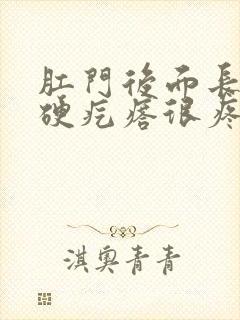 肛門後面長
硬疙瘩很疼
淇奧青青